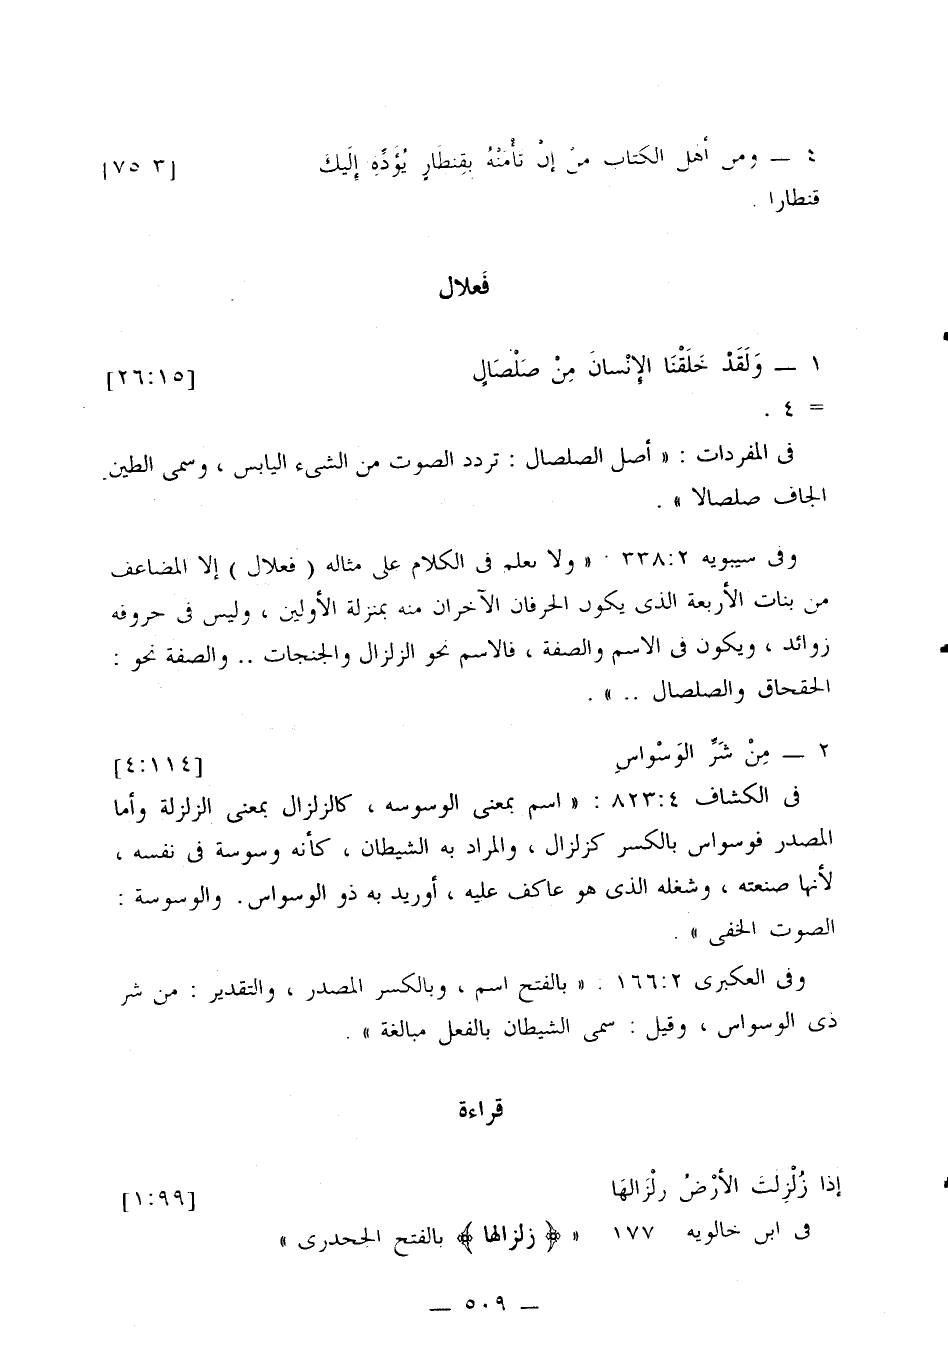 ٤ — ومن أهل الكتاب من إنْ تَأْمَنْهُ بِقِنطَارٍ يُؤَدِّهِ إِلَيكَ [٣ ٧٥]
قنطارا .
فَعلال
١ — وَلَقَدْ خَلَقْنَا الإِنْسانَ مِنْ صَلْصَالٍ [٢٦:١٥]
= ٤ .
فى المفردات : « أصل الصلصال : تردد الصوت من الشىء اليابس ، وسمى الطين
الجاف صلصالا » .
وفى سيبويه ٣٣٨:٢ . « ولا يعلم فى الكلام على مثاله ( فعلال ) إلا المضاعف
من بنات الأربعة الذى يكون الحرفان الآخران منه بمنزلة الأولين ، وليس فى حروفه
زوائد ، ويكون فى الاسم والصفة ، فالاسم نحو الزلزال والجنجات .. والصفة نحو :
الحقحاق والصلصال .. » .
٢ — مِنْ شَرِّ الوَسْواسِ [٤:١١٤]
فى الكشاف ٨٢٣:٤ : « اسم بمعنى الوسوسه ، كالزلزال بمعنى الزلزلة وأما
المصدر فوسواس بالكسر كزلزال ، والمراد به الشيطان ، كأنه وسوسة فى نفسه ،
لأنها صنعته ، وشغله الذى هو عاكف عليه ، أوريد به ذو الوسواس. والوسوسة :
الصوت الخفى » .
وفى العكبرى ١٦٦:٢ : « بالفتح اسم ، وبالكسر المصدر ، والتقدير : من شر
ذى الوسواس ، وقيل : سمى الشيطان بالفعل مبالغة » .
قراءة
إذا زُلْزِلتَ الأرْضُ زلْزَالهَا [١:٩٩]
فى ابن خالويه ١٧٧ « ﴿ زلزالها ﴾ بالفتح الجحدرى »
— ٥٠٩ —